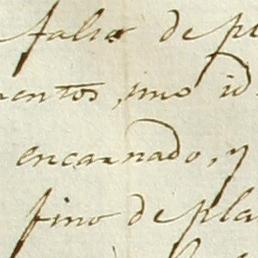 falso de p
entos, uno id
encarnado, y
fino de pla